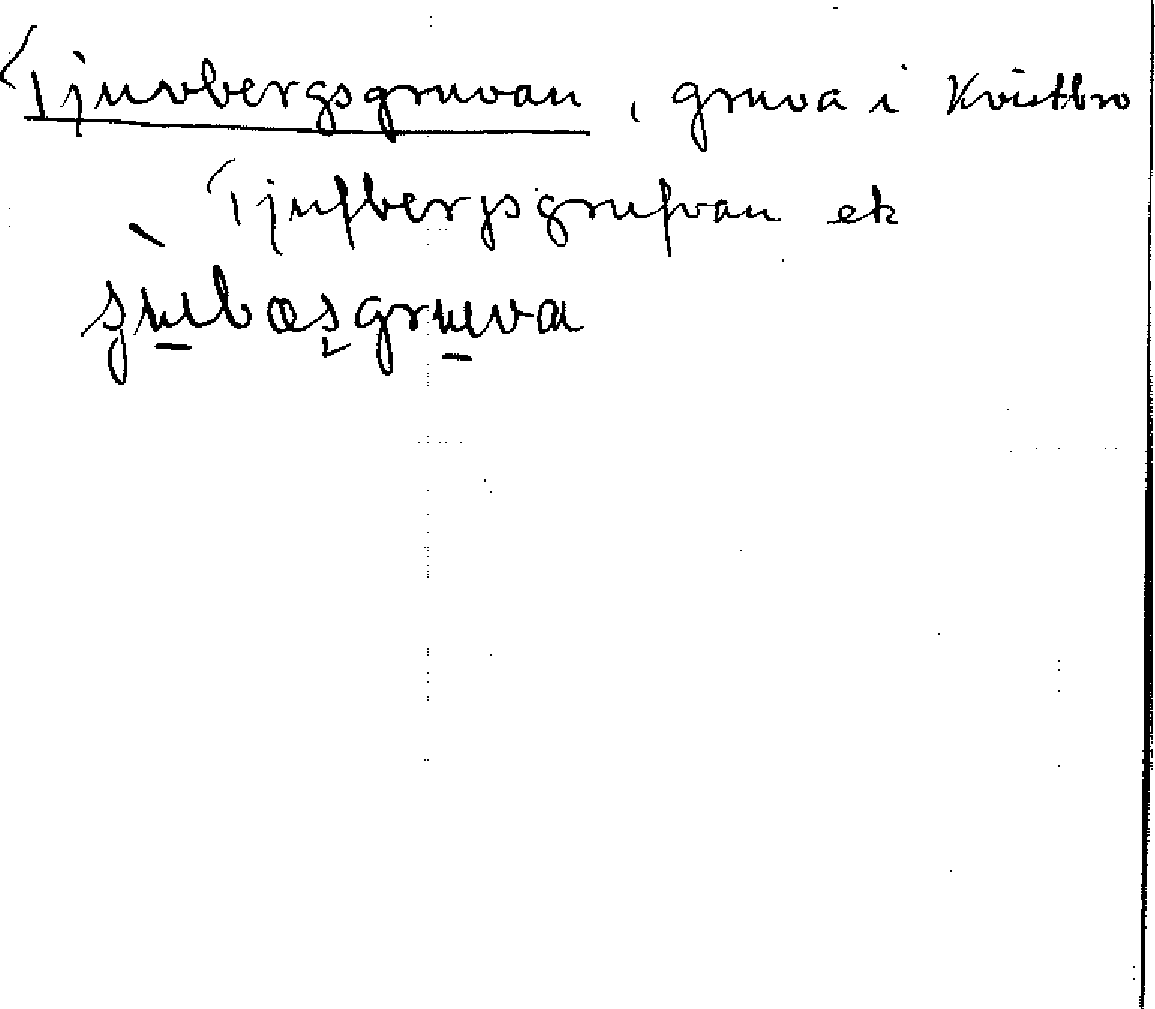 Tjuvbergsgruvan, gruva i Kvistbro
Tjufbergsgrufvan ek